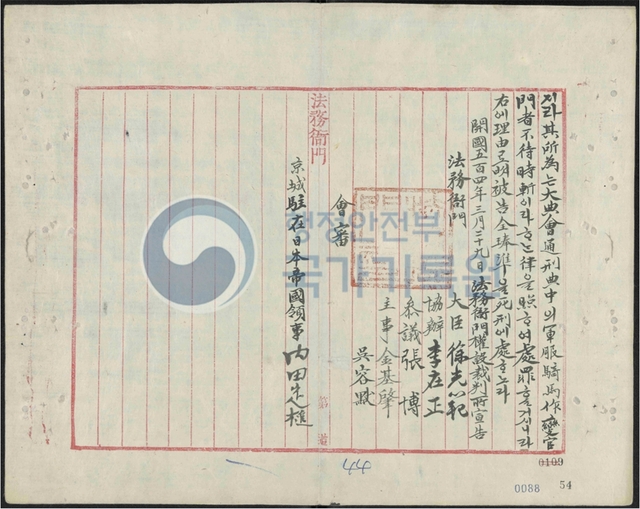 지라其所為는大典會通刑典中의軍服騎馬作變官
門者不待時斬이라ᄒᆞᄂᆞᆫ律을照ᄒᆞ여處罪ᄒᆞᆯ거시니라
右에理由로明被告全琫準을死刑에處ᄒᆞ노라
開國五百四年三月二十九日 法務衙門權設裁判所宣告
法務衙門
大臣 徐光範
協辦 李在正
參議 張博
主事 金基肇
吳容默
會審
法務衙門
京城駐在日本帝國領事 內田定槌
第 道
행정안전부
국가기록원
44
0109
0088
54